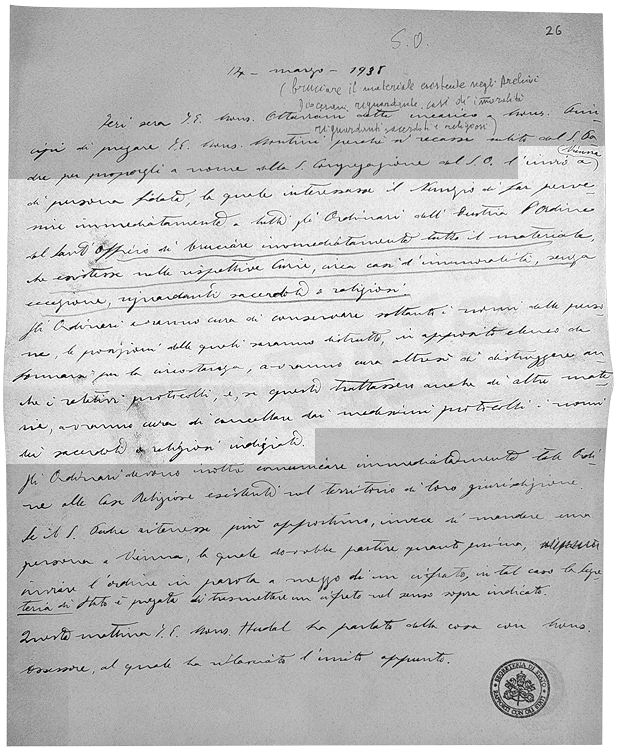 26
S. O.
14 - marzo - 1938
(bruciare il materiale esistente negli Archivi
Diocesani riguardante casi di immoralità
riguardanti sacerdoti e religiosi)
Ieri sera S.E. Mons. Ottaviani dette incarico a Mons.
di pregare S.E. Mons. Montini, perché si recasse subito dal S. Pa-
dre per proporgli a nome della S. Congregazione del S.O. l'invio a Vienna
di persona fidata, la quale interessasse il Nunzio di far perve-
nire immediatamente a tutti gli Ordinari dell'Austria l'ordine
del Sant'Offizio di bruciare immediatamente tutto il materiale,
che esistesse nelle rispettive Curie, circa casi d'immoralità, senza
eccezione, riguardanti sacerdoti e religiosi.
Gli Ordinari avranno cura di conservare soltanto i nomi delle perso-
ne, le posizioni delle quali saranno distrutte, in apposito elenco da
formarsi per la circostanza, avranno cura altresì di distruggere an-
che i relativi protocolli, e, se questi trattassero anche di altre mate-
rie, avranno cura di cancellare dai medesimi protocolli i nomi
dei sacerdoti e religiosi indiziati.
Gli Ordinari devono inoltre comunicare immediatamente tale Ordi-
ne alle Case Religiose esistenti nel territorio di loro giurisdizione.
Se il S. Padre ritenesse più opportuno, invece di mandare una
persona a Vienna, la quale dovrebbe partire quanto prima,
inviare l'ordine in parola a mezzo di un cifrato, in tal caso la Segre-
teria di Stato è pregata di trasmettere un cifrato nel senso sopra indicato.
Questa mattina S.E. Mons. Hudal ha parlato della cosa con Mons.
Assessore, al quale ha rilasciato l'unito appunto.
SEGRETERIA DI STATO
RAPPORTI CON GLI STATI